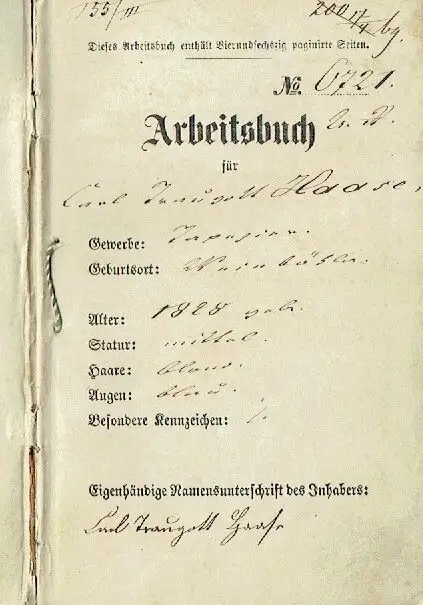 155/III
200 17/4 69.
Dieses Arbeitsbuch enthält Vierundsechszig paginirte Seiten.
No. 6721.
Arbeitsbuch
für
Carl Traugott Haase,
Gewerbe: Tapezier.
Geburtsort: Weinböhla.
Alter: 1828 geb.
Statur: mittel.
Haare: blond.
Augen: blau.
Besondere Kennzeichen: /.
Eigenhändige Namensunterschrift des Inhabers:
Carl Traugott Haase